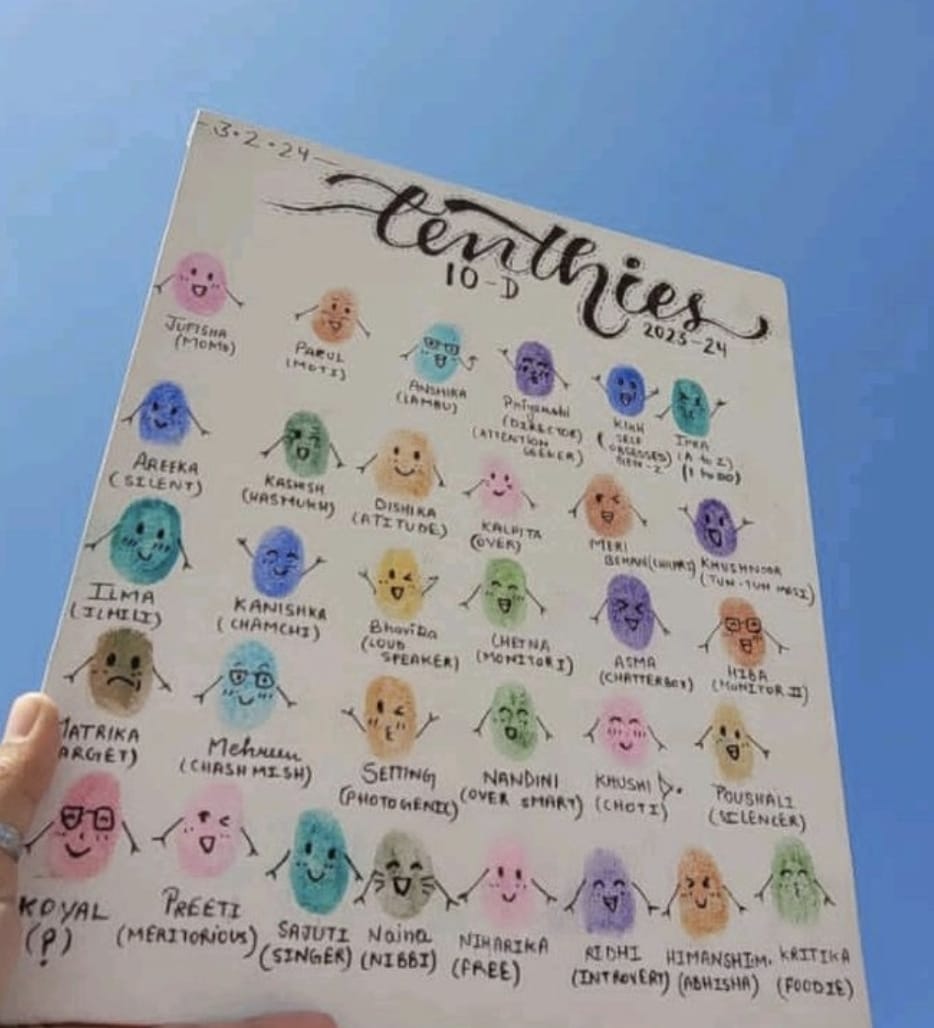 -3.2.24-
tenthies
10-D
2023-24
JUFISHA
(MOMO)
PARUL
(MOTI)
ANSHIKA
(LAMBU)
Priyanshi
(DIRECTOR)
(ATTENTION
SEEKER)
KHUSH
(SELF
OBSESSED)
GEN-Z
(A to Z)
(1 to 00)
AREEKA
(SILENT)
KASHISH
(HASMUKH)
DISHIKA
(ATITUDE)
KALPITA
(OVER)
MERI
BEHAN
KHUSHNOOR
(TUN-TUN MASI)
ILMA
(ILMILI)
KANISHKA
(CHAMCHI)
Bhavika
(LOUD
SPEAKER)
CHETNA
(MONITOR I)
ASMA
(CHATTERBOX)
HIBA
(MONITOR II)
MATRIKA
ARGET)
Mehreen
(CHASHMISH)
SETTING
(PHOTOGENIC)
NANDINI
(OVER SMART)
KHUSHI D.
(CHOTI)
POUSHALI
(SILENCER)
KOYAL
(?)
PREETI
(MERITORIOUS)
SAJUTI
(SINGER)
Naina
(NIBBI)
NIHARIKA
(FREE)
RIDHI
(INTROVERT)
HIMANSHI M.
(ABHISHA)
KRITIKA
(FOODIE)